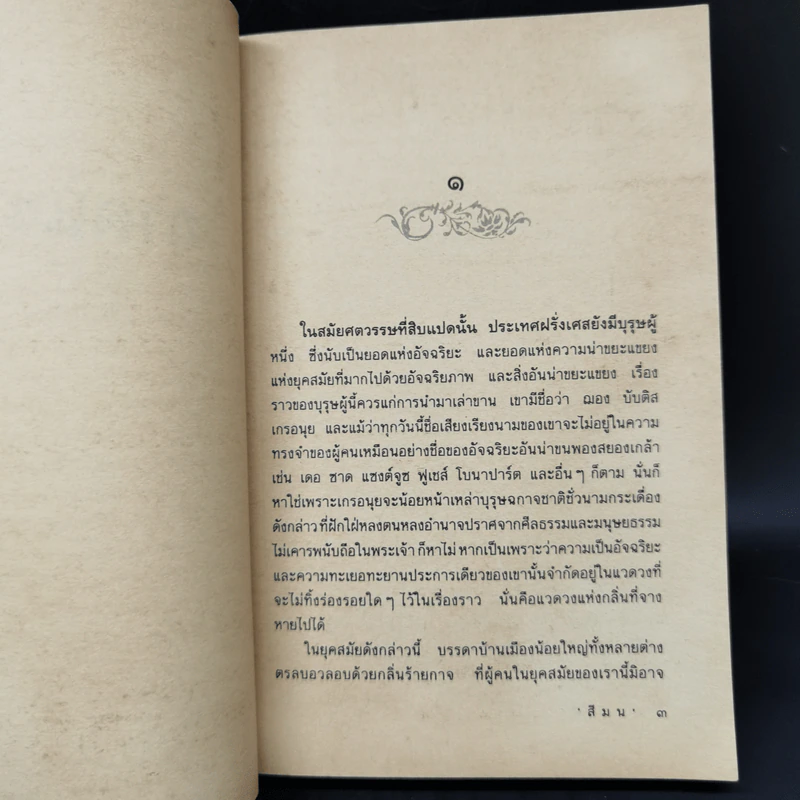 ๑
ในสมัยศตวรรษที่สิบแปดนั้น ประเทศฝรั่งเศสยังมีบุรุษผู้
หนึ่ง ซึ่งนับเป็นยอดแห่งอัจฉริยะ และยอดแห่งความน่าขยะแขยง
แห่งยุคสมัยที่มากไปด้วยอัจฉริยภาพ และสิ่งอันน่าขยะแขยง เรื่อง
ราวของบุรุษผู้นี้ควรแก่การนำมาเล่าขาน เขามีชื่อว่า ฌอง บับติส
เกรอนุย และแม้ว่าทุกวันนี้ชื่อเสียงเรียงนามของเขาจะไม่อยู่ในความ
ทรงจำของผู้คนเหมือนอย่างชื่อของอัจฉริยะอันน่าขนพองสยองเกล้า
เช่น เดอ ซาด แซงต์จูซ ฟูเชส์ โบนาปาร์ต และอื่นๆ ก็ตาม นั่นก็
หาใช่เพราะเกรอนุยจะน้อยหน้าเหล่าบุรุษฉกาจชาติชั่วนามกระเดื่อง
ดังกล่าวที่ฝักใฝ่หลงตนหลงอำนาจปราศจากศีลธรรมและมนุษยธรรม
ไม่เคารพนับถือในพระเจ้า ก็หาไม่ หากเป็นเพราะว่าความเป็นอัจฉริยะ
และความทะเยอทะยานประการเดียวของเขานั้นจำกัดอยู่ในแวดวงที่
จะไม่ทิ้งร่องรอยใดๆ ไว้ในเรื่องราว นั่นคือแวดวงแห่งกลิ่นที่จาง
หายไปได้
ในยุคสมัยดังกล่าวนี้ บรรดาบ้านเมืองน้อยใหญ่ทั้งหลายต่าง
ตรลบอวลอบด้วยกลิ่นร้ายกาจ ที่ผู้คนในยุคสมัยของเรานี้มิอาจ
' สีมน ' ๓